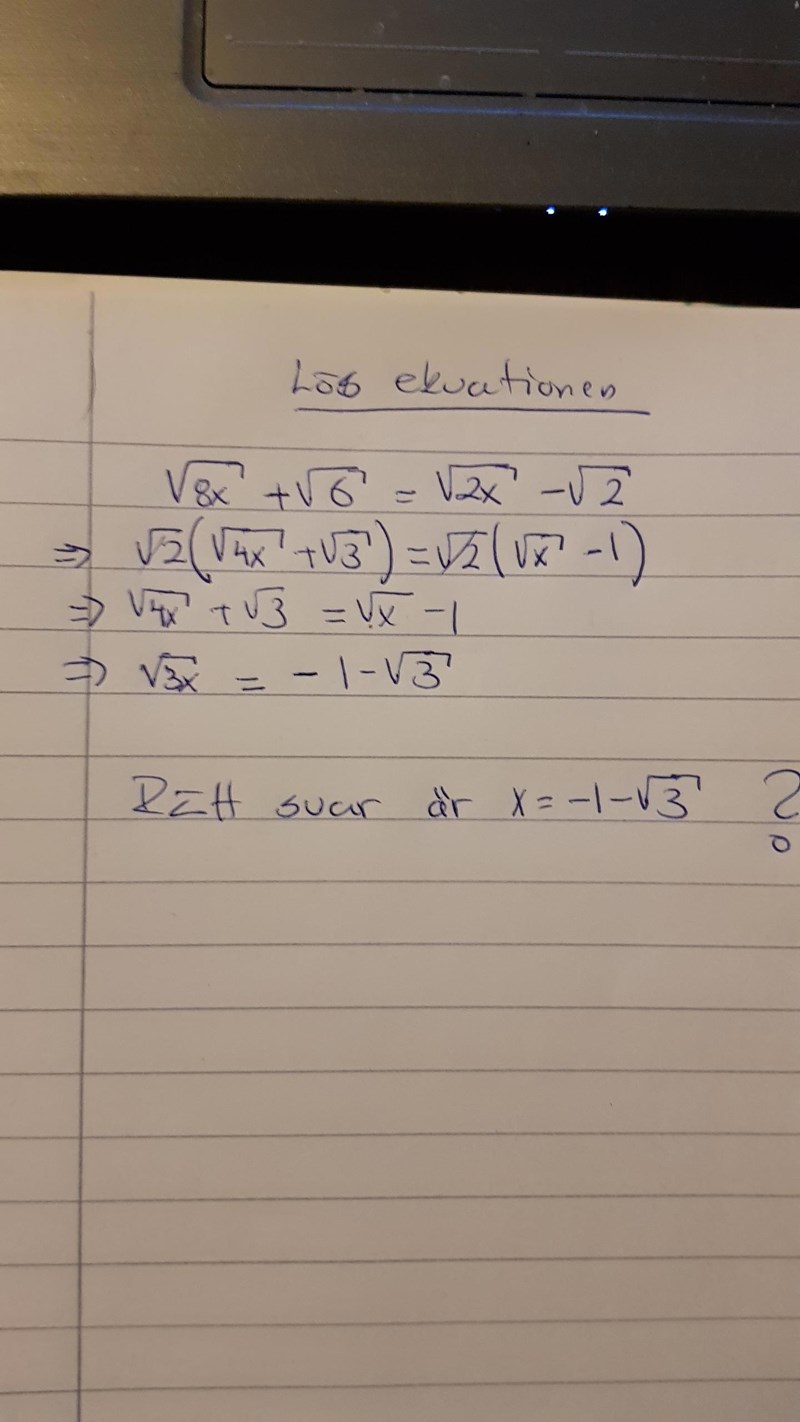 Lös ekvationen
√8x + √6 = √2x - √2
⇒ √2(√4x + √3) = √2(√x - 1)
⇒ √4x + √3 = √x - 1
⇒ √3x = -1-√3
Rätt svar är x = -1-√3 ?